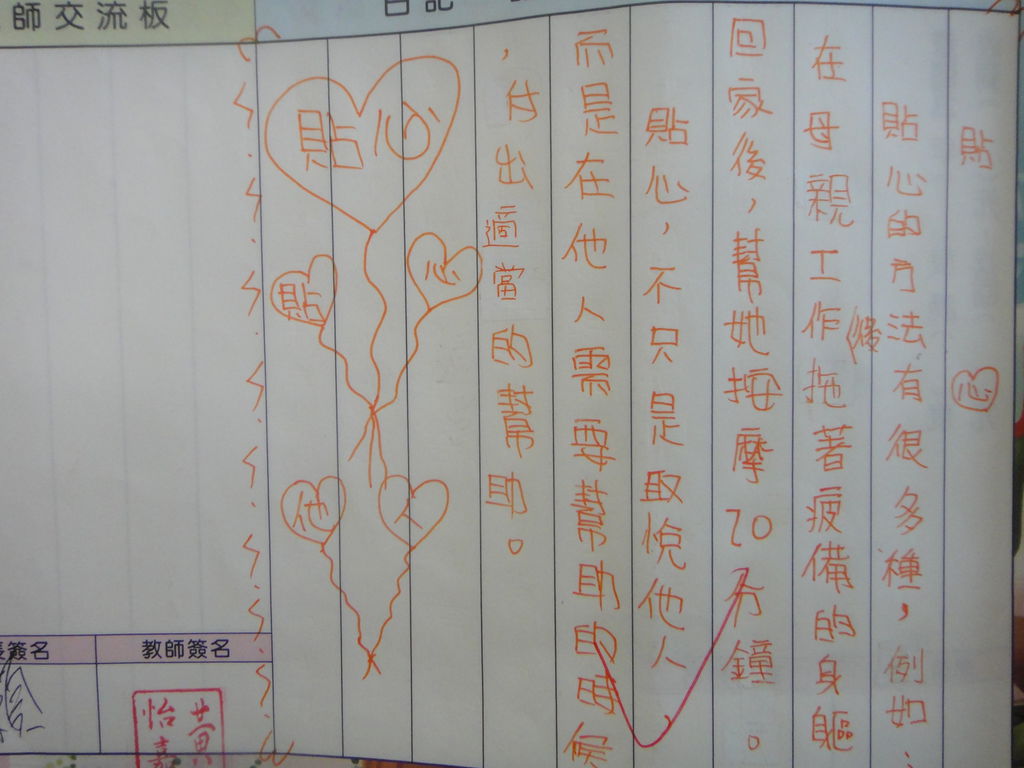 師交流板
日記
貼心
貼心的方法有很多種，例如：
在母親工作後拖著疲備的身軀
回家後，幫她按摩20分鐘。
貼心，不只是取悅他人
而是在他人需要幫助的時候
，付出適當的幫助。
貼心
貼心
他人
簽名
教師簽名
黃
怡嘉